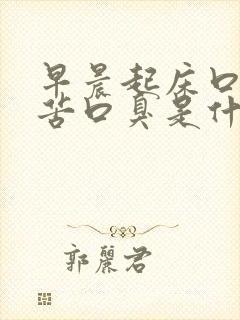 早晨起床口
苦口臭是什
郭丽君